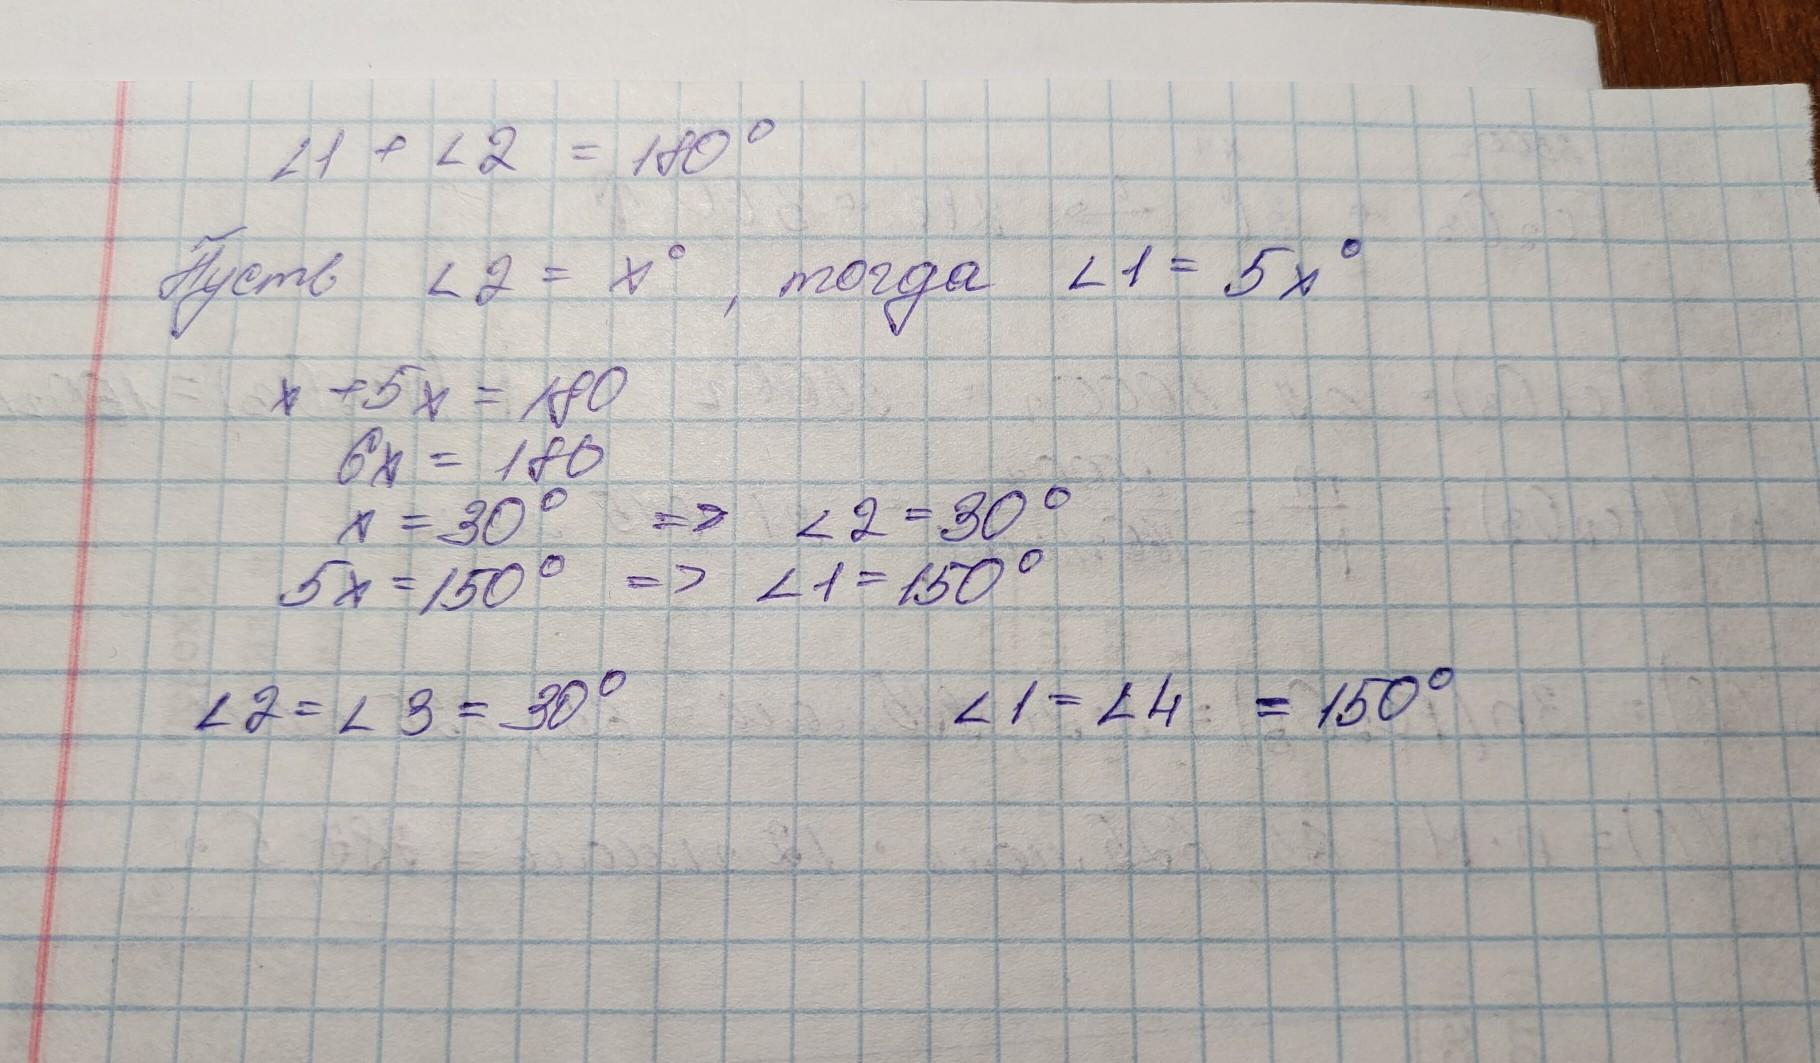 ∠1 + ∠2 = 180°
Пусть ∠2 = x°, тогда ∠1 = 5x°
x + 5x = 180
6x = 180
x = 30° => ∠2 = 30°
5x = 150° => ∠1 = 150°
∠2 = ∠3 = 30° ∠1 = ∠4 = 150°